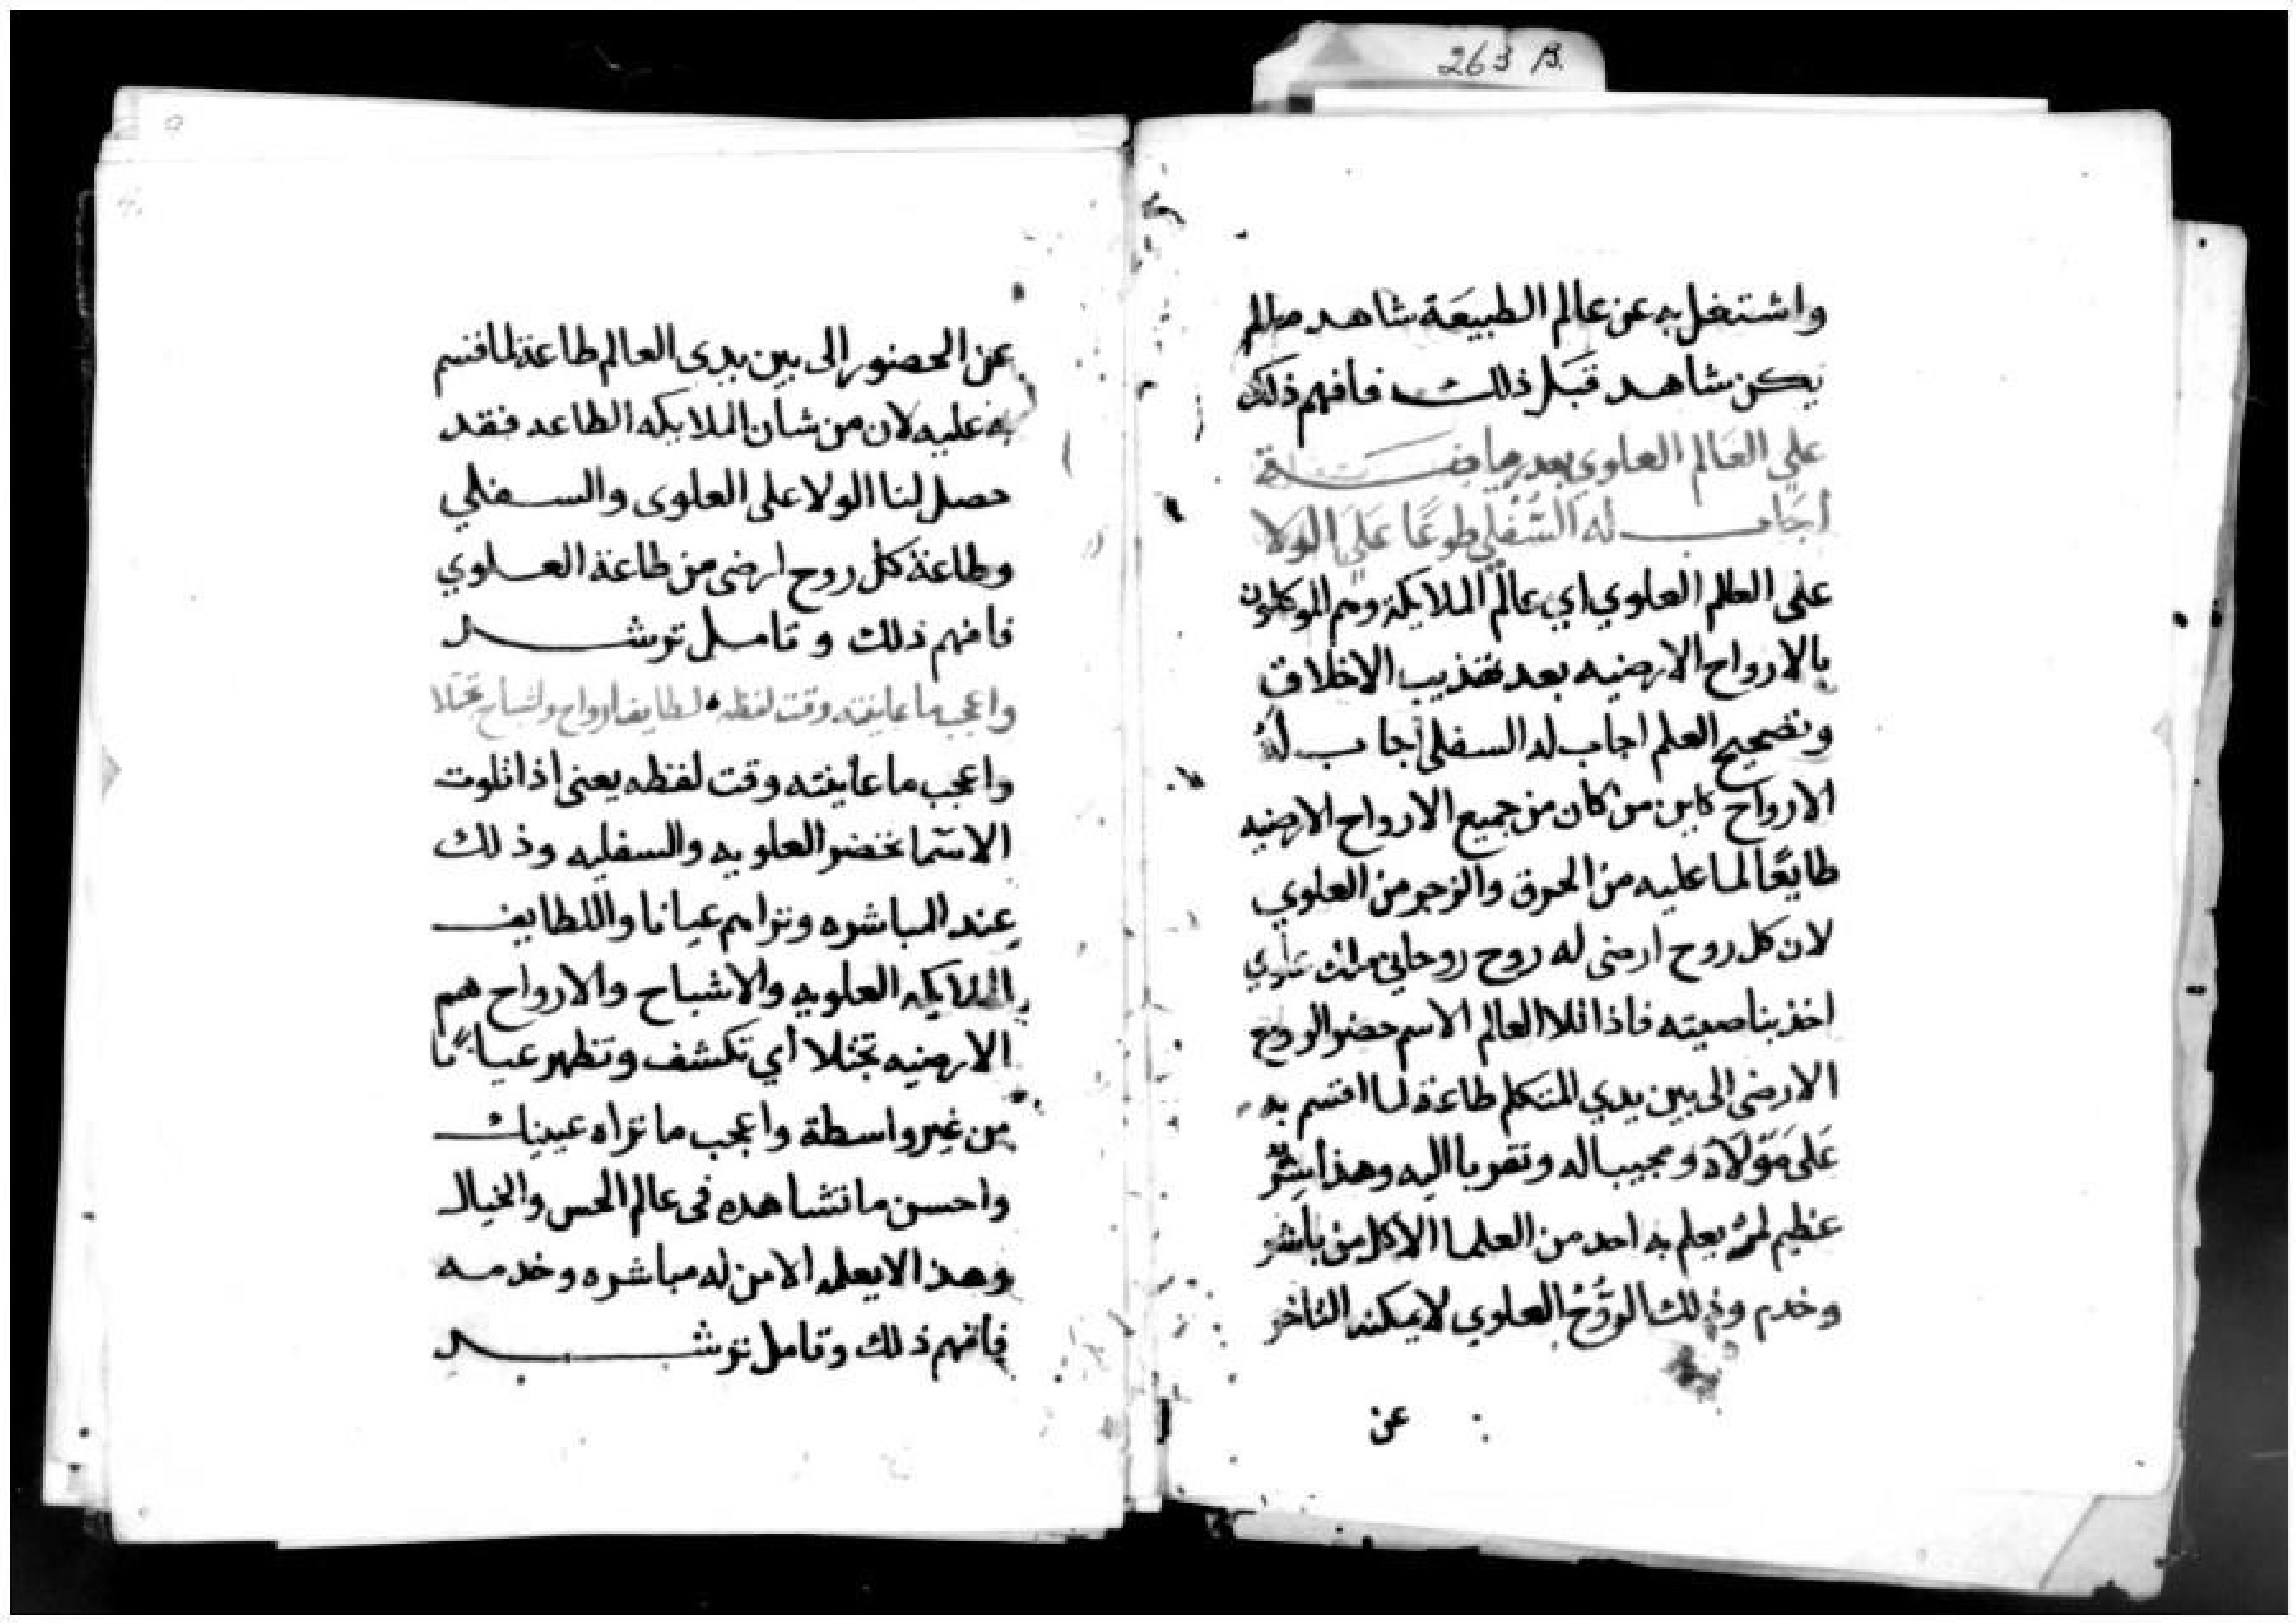 263 B.
واشتغل به عن عالم الطبيعَة شاهد مالم
يكن شاهد قَبل ذلك فافهم ذلك
على العَالم العلوي بعد رياضة
أجَاب له السُّفلي طوعًا عَلَى الولا
على العالم العلوي اي عالم الملايكة وهم الموكلون
بالارواح الارضيه بعد تهذيب الاخلاق
وتصحيح العلم اجاب له السفلى أجاب لهُ
الارواح كاين من كان من جميع الارواح الارضيه
طايعًا لما عليه من الحرق والزجر من العلوي
لان كل روح ارضى له روح روحاني ملك علوي
اخذ بناصيته فاذا تلا العالم الاسم حضر الروح
الارضى الى بين يدي المتكلم طاعة لما اقسم به
عَلى مَوْلَاهُ ومجيبا له وتقربا اليه وهذا سِرٌّ
عظيم لم يعلم به احد من العلما الا كل من باشر
وخدم وذلك الرُّوحُ العلوي لا يمكنه التاخر
عن
9
عن الحضور الى بين يدى العالم طاعة لما اقسم
به عليه لان من شان الملايكه الطاعه فقد
حصل لنا الولا على العلوى والسفلي
وطاعة كل روح ارضى من طاعة العلوي
فافهم ذلك وتامل ترشد
واعجب ما عاينته وقت لفظه لطايف ارواح واشباح تجتلا
واعجب ما عاينته وقت لفظه يعنى اذا تلوت
الاسَما تحضر العلويه والسفليه وذلك
عند المباشره وتراهم عيانا واللطايف
الملايكه العلويه والاشباح والارواح هم
الارضيه تجتلا أي تكشف وتظهر عيانًا
من غير واسطة واعجب ما تراه عينيك
واحسن ما تشاهده فى عالم الحس والخيال
وهذا لا يعلمه الا من له مباشره وخدمه
فافهم ذلك وتامل ترشد